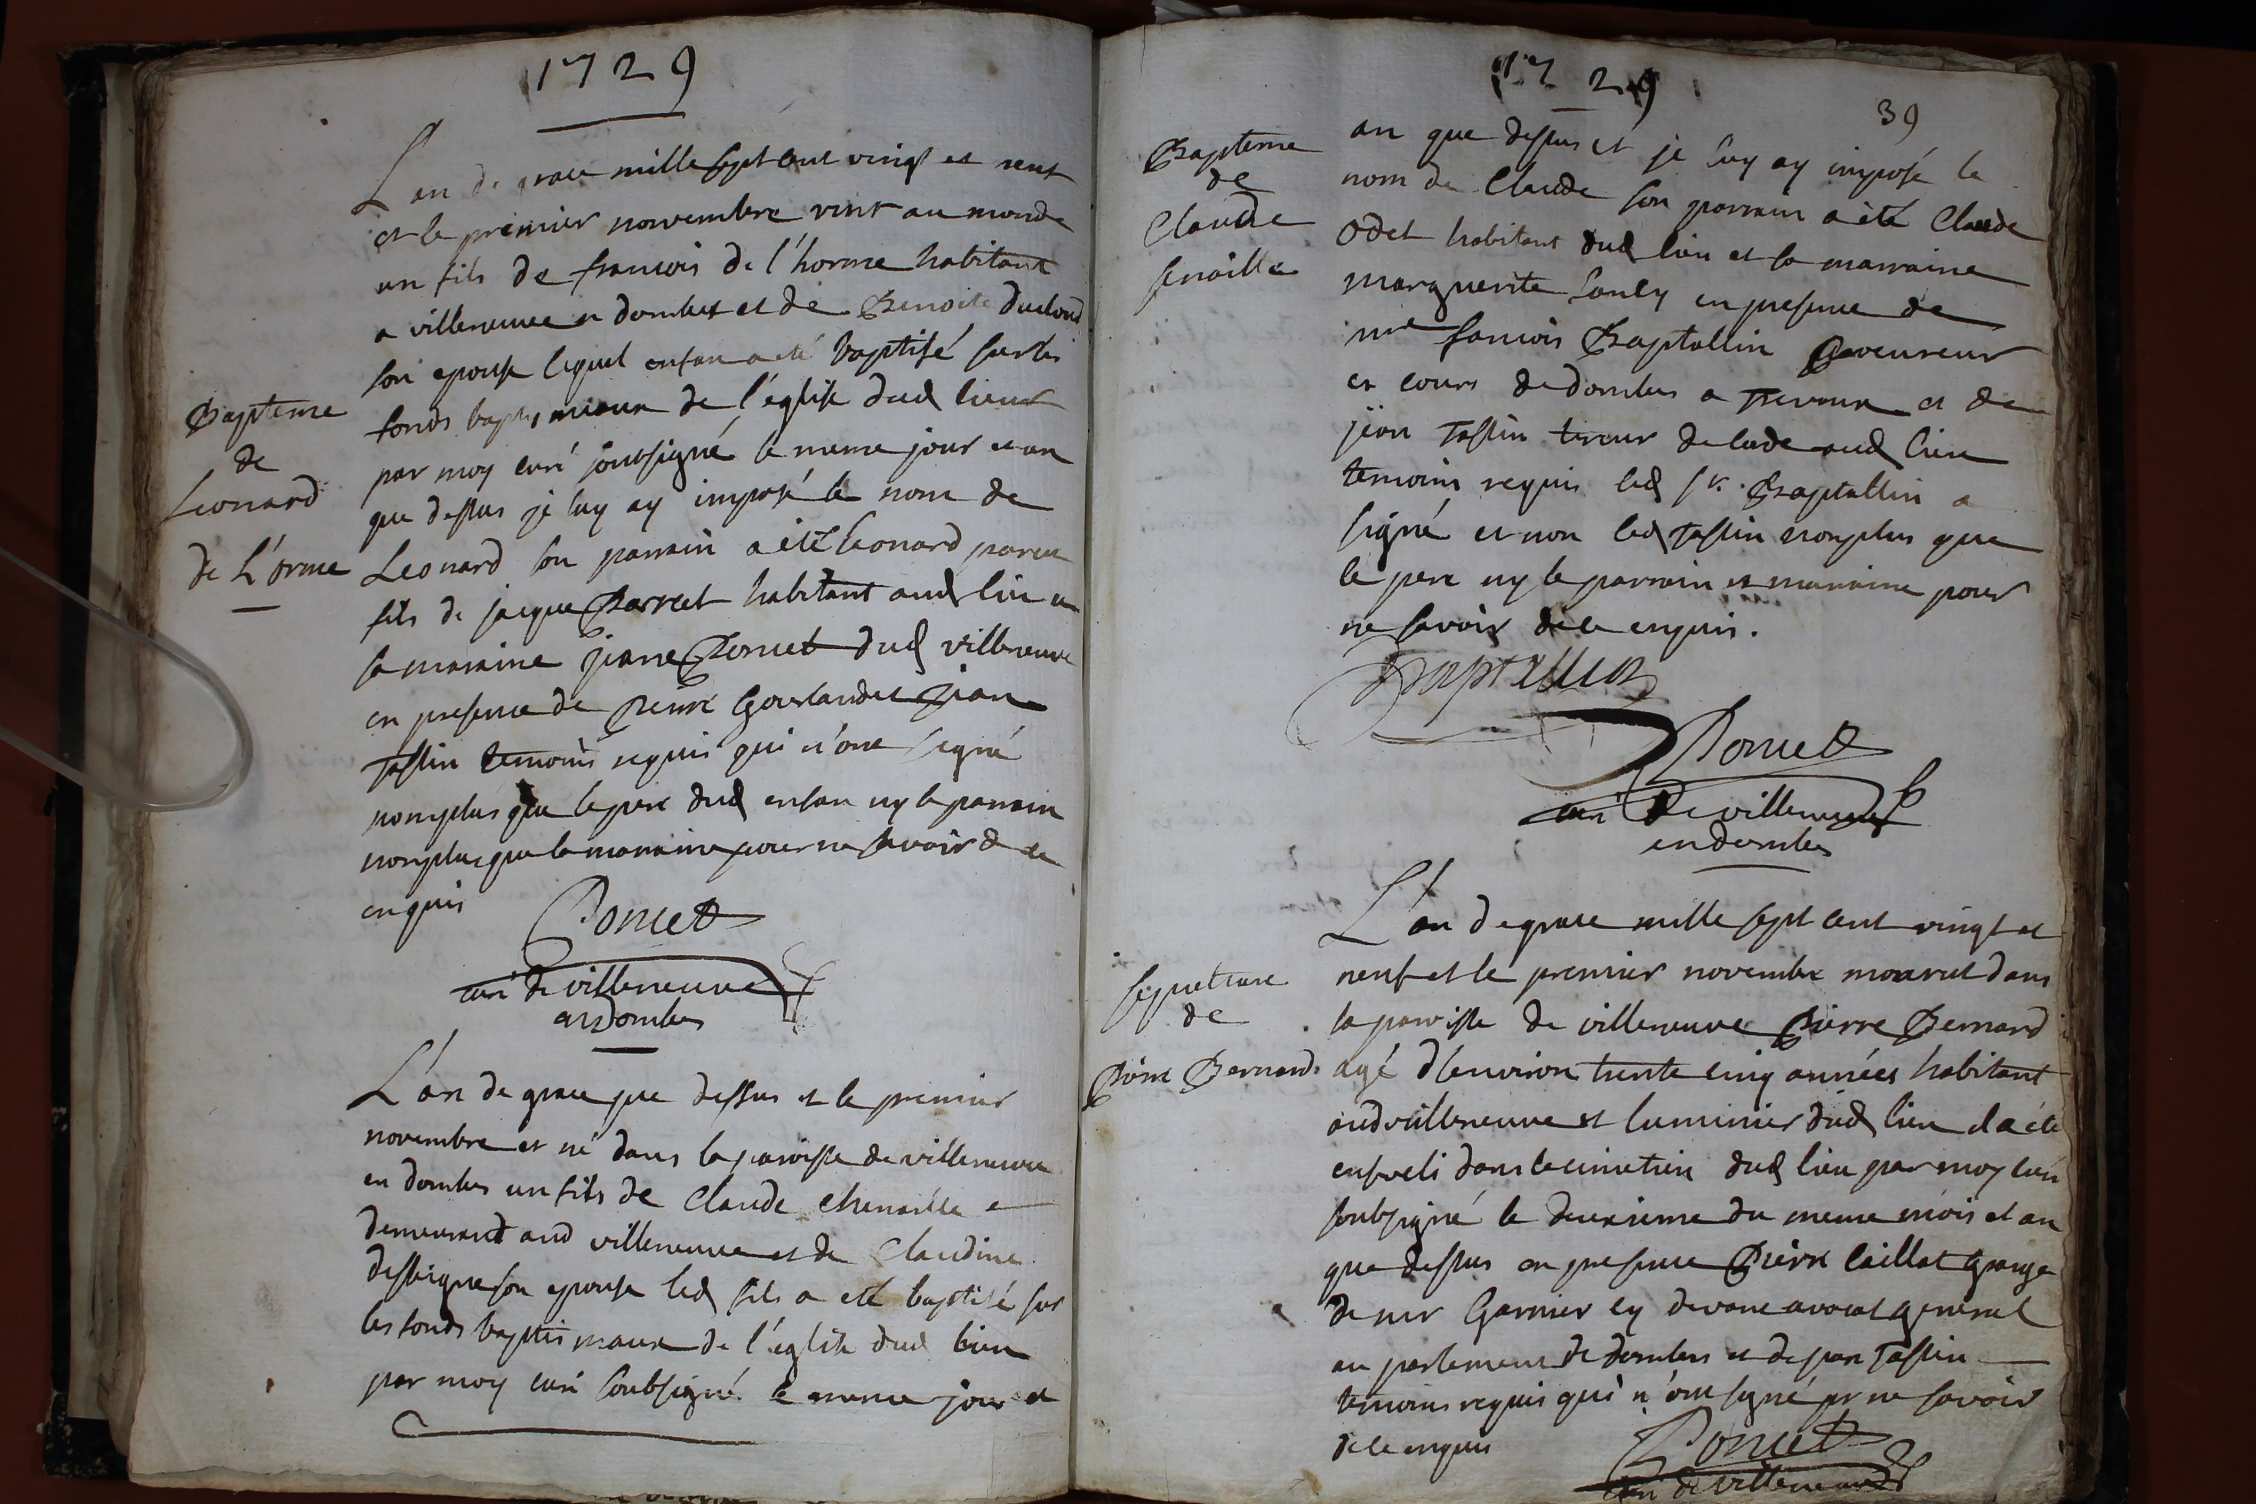 1729
L'an de grace mille sept cent vingt et neuf
et le premier novembre vint au monde
un fils de francois de l'horme habitant
a villeneuve en dombes et de Benoite
son epouse lequel enfan a eté baptisé sur les
fonds baptismaux de l'église dud lieu
par moy curé soubsigné le meme jour et an
que dessus je luy ay imposé le nom de
Leonard son parrain a eté Leonard
fils de jacque Parret habitant aud lieu et
sa maraine jeane Poncet dud villeneuve
en presence de Pierre Gourlandet jean
Tassin temoins requis qui n'ont signé
nomplus que le pere dud enfan ny le parrain
nomplus que la maraine pour ne savoir de ce
enquis
Poncet
curé de villeneuve
en Dombes
Bapteme
de
Leonard
de L'orme
L'an de grace que dessus et le premier
novembre et né dans la paroisse de villeneuve
en dombes un fils de Claude chenaille
demeurant aud villeneuve et de Claudine
son epouse led fils a eté baptisé sur
les fonds baptismaux de l'église dud lieu
par moy curé soubsigné le meme jour et
1729
39
Bapteme
de
Claude
senaille
an que dessus et je luy ay imposé le
nom de Claude son parrain a été Claude
Odet habitant dud lieu et sa marraine
marguerite en presence de
me francois Baptallin procureur
es cours de dombes a Trevoux et de
jean Tassin tireur de corde aud lieu
temoins requis led sr. Baptallin a
signé et non led Tassin nonplus que
le pere ny le parrain et marraine pour
ne savoir de ce enquis.
Baptallin
Poncet
curé de villeneuve
en dombes
sepulture
de
Pierre Bernard
L'an de grace mille sept cent vingt et
neuf et le premier novembre mourut dans
la paroisse de villeneuve Pierre Bernard
agé d'environ trente cinq années habitant
aud villeneuve et luminier dud lieu il a été
enseveli dans le cimetiere dud lieu par moy curé
soubsigné le deuxieme du meme mois et an
que dessus en presence Pierre Caillat grange
de mr Garnier cy devant avocat general
au parlement de dombes et de jean Tassin
temoins requis qui n'ont signé pr ne savoir
de ce enquis
Poncet
curé de villeneuve